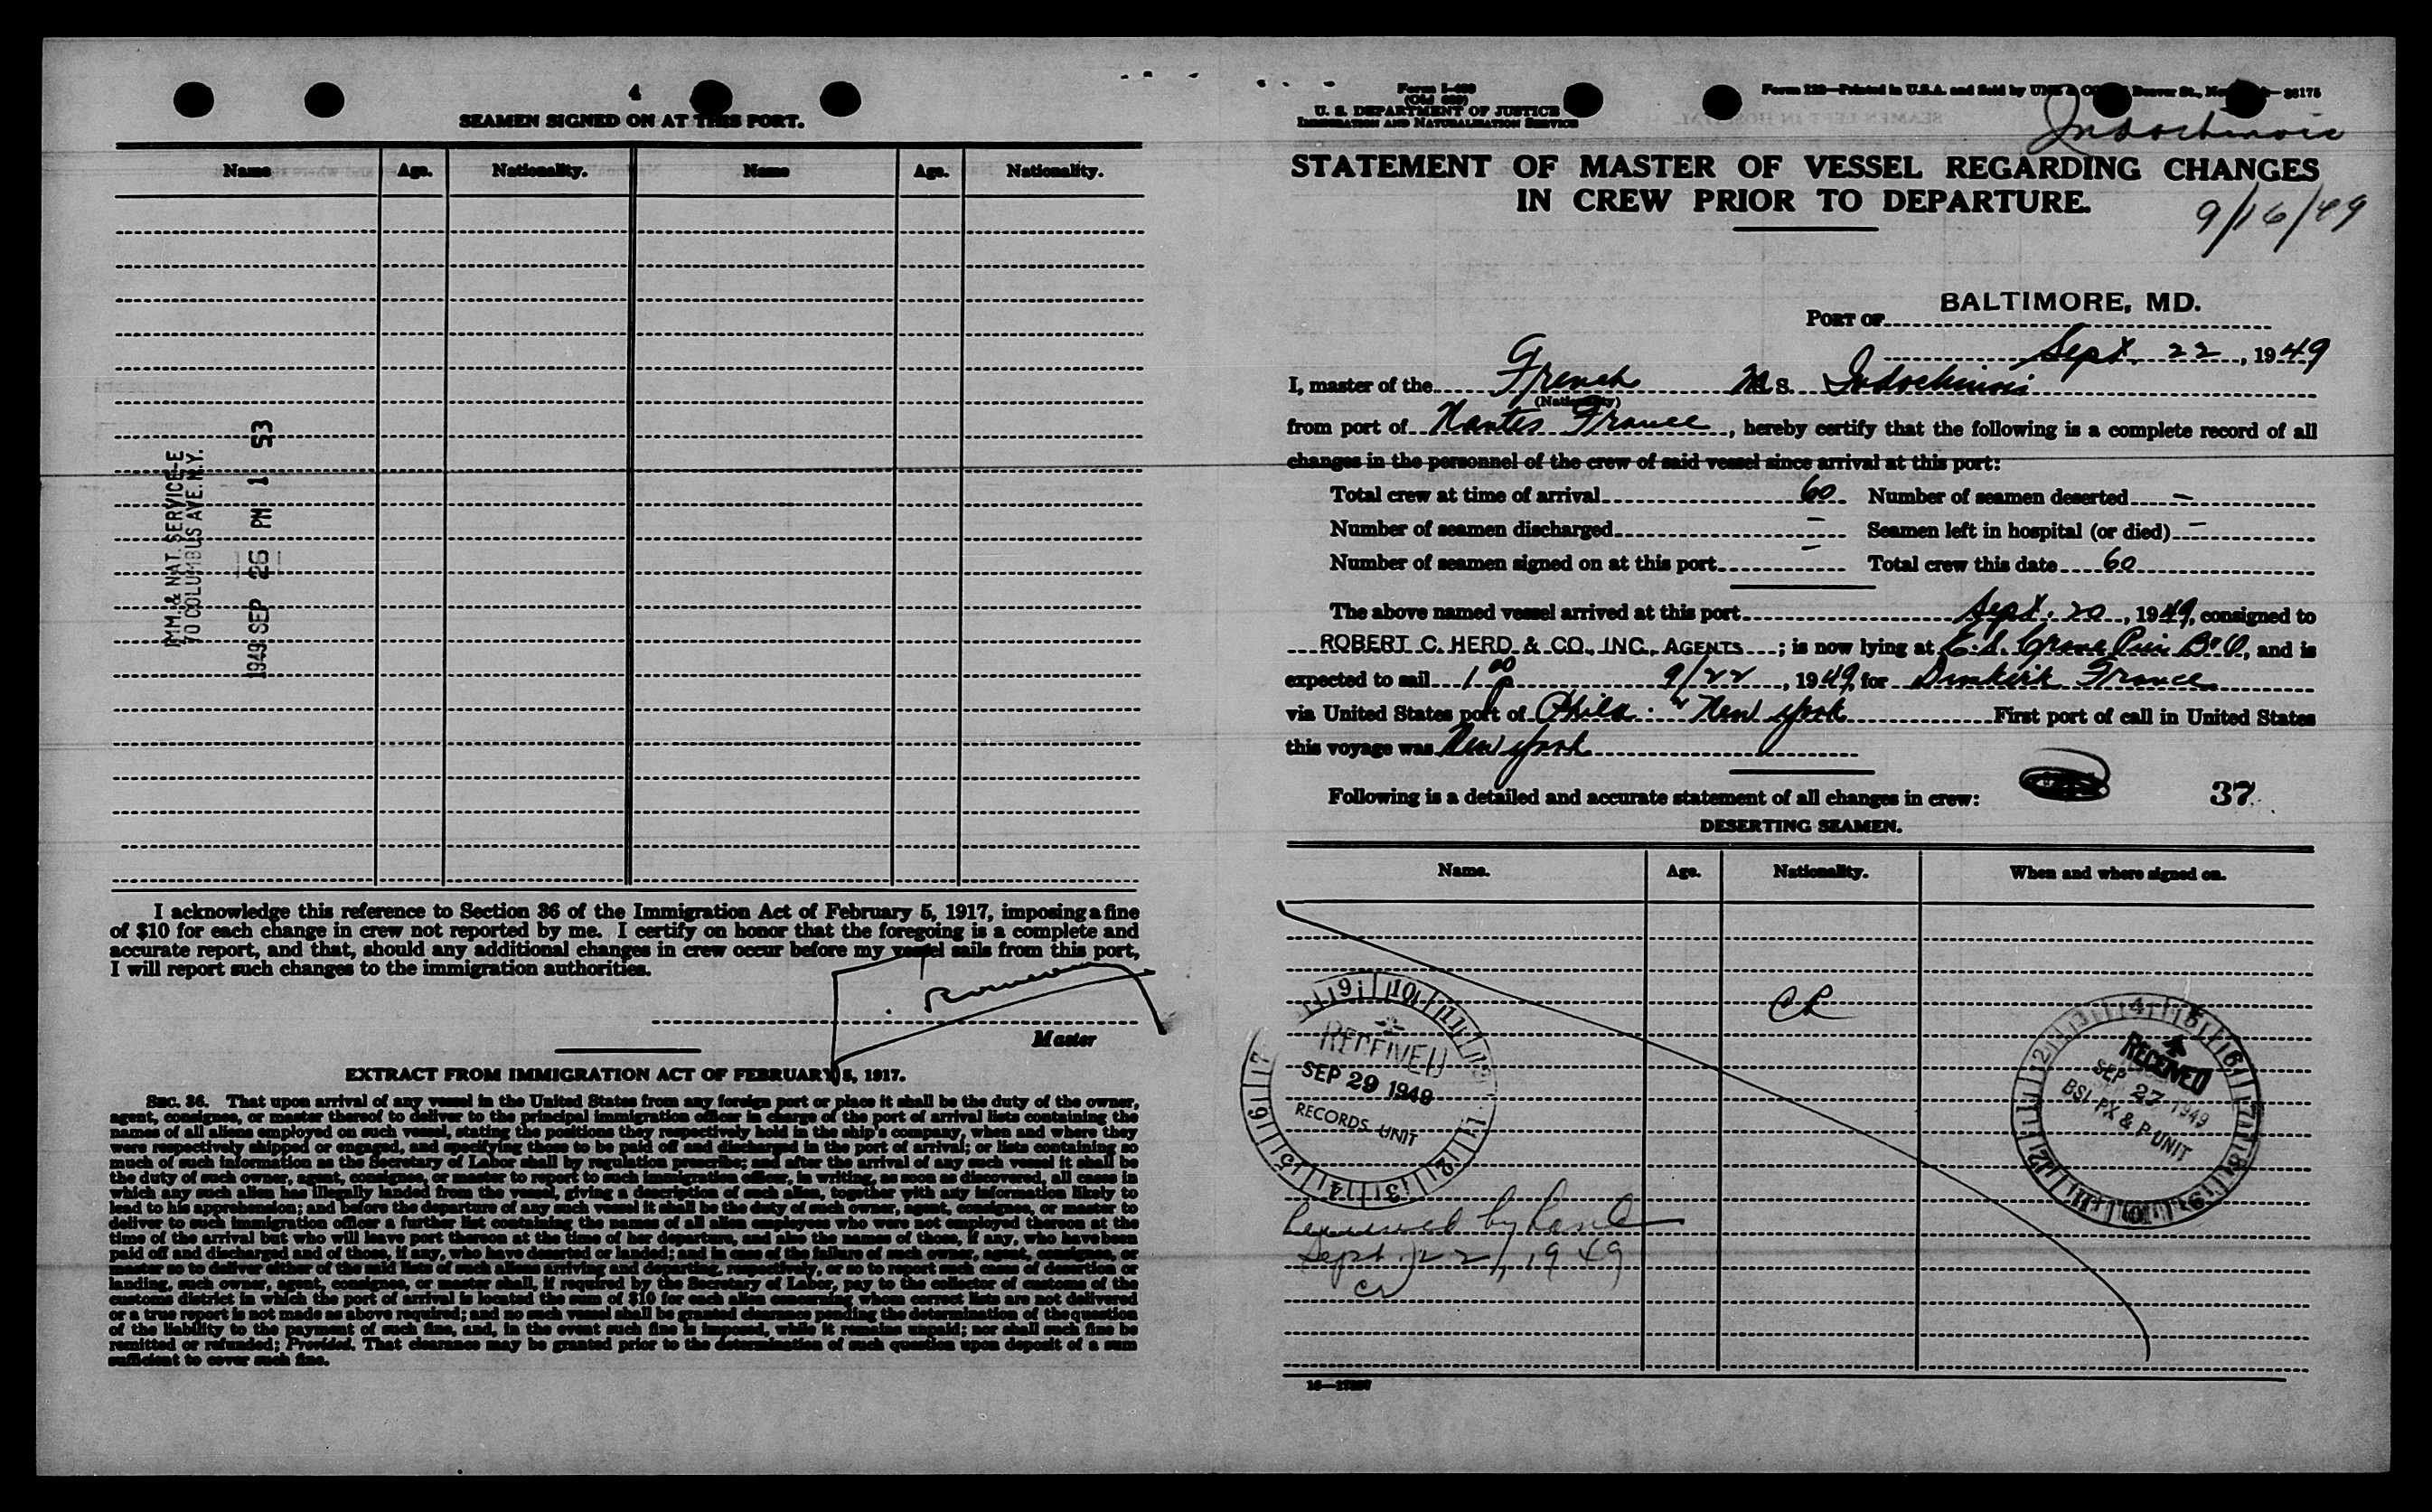 4
SEAMEN SIGNED ON AT THIS PORT.
Name Age. Nationality. Name Age. Nationality.
IMM. & NAT. SERVICE-E
70 COLUMBUS AVE. N.Y.
1949 SEP 26 PM 1 53
I acknowledge this reference to Section 36 of the Immigration Act of February 5, 1917, imposing a fine
of $10 for each change in crew not reported by me. I certify on honor that the foregoing is a complete and
accurate report, and that, should any additional changes in crew occur before my vessel sails from this port,
I will report such changes to the immigration authorities.
Master
EXTRACT FROM IMMIGRATION ACT OF FEBRUARY 5, 1917.
SEC. 36. That upon arrival of any vessel in the United States from any foreign port or place it shall be the duty of the owner,
agent, consignee, or master thereof to deliver to the principal immigration officer in charge of the port of arrival lists containing the
names of all aliens employed on such vessel, stating the positions they respectively hold in the ship's company, when and where they
were respectively shipped or engaged, and specifying those to be paid off and discharged in the port of arrival; or lists containing so
much of such information as the Secretary of Labor shall by regulation prescribe; and after the arrival of any such vessel it shall be
the duty of such owner, agent, consignee, or master to report to such immigration officer, in writing, as soon as discovered, all cases in
which any such alien has illegally landed from the vessel, giving a description of such alien, together with any information likely to
lead to his apprehension; and before the departure of any such vessel it shall be the duty of such owner, agent, consignee, or master to
deliver to such immigration officer a further list containing the names of all alien employees who were not employed thereon at the
time of the arrival but who will leave port thereon at the time of her departure, and also the names of those, if any, who have been
paid off and discharged and of those, if any, who have deserted or landed; and in case of the failure of such owner, agent, consignee, or
master so to deliver either of the said lists of such aliens arriving and departing, respectively, or so to report such cases of desertion or
landing, such owner, agent, consignee, or master shall, if required by the Secretary of Labor, pay to the collector of customs of the
customs district in which the port of arrival is located the sum of $10 for each alien concerning whom correct lists are not delivered
or a true report is not made as above required; and no such vessel shall be granted clearance pending the determination of the question
of the liability to the payment of such fine, and, in the event such fine is imposed, while it remains unpaid; nor shall such fine be
remitted or refunded; Provided, That clearance may be granted prior to the determination of such question upon deposit of a sum
sufficient to cover such fine.
U. S. DEPARTMENT OF JUSTICE
IMMIGRATION AND NATURALIZATION SERVICE
Printed in U.S.A. and Sold by
Indochinois
STATEMENT OF MASTER OF VESSEL REGARDING CHANGES
IN CREW PRIOR TO DEPARTURE.
9/16/49
PORT OF BALTIMORE, MD.
Sept. 22, 1949
I, master of the French M S. Indochinois
(Nationality)
from port of Nantes France, hereby certify that the following is a complete record of all
changes in the personnel of the crew of said vessel since arrival at this port:
Total crew at time of arrival 60 Number of seamen deserted –
Number of seamen discharged – Seamen left in hospital (or died) –
Number of seamen signed on at this port – Total crew this date 60
The above named vessel arrived at this port Sept. 20, 1949, consigned to
ROBERT C. HERD & CO., INC., AGENTS; is now lying at Pier B&O, and is
expected to sail 1 00 p 9/22, 1949, for Dunkirk France
via United States port of Phila. New York First port of call in United States
this voyage was New York
37
Following is a detailed and accurate statement of all changes in crew:
DESERTING SEAMEN.
Name. Age. Nationality. When and where signed on.
RECEIVED
SEP 29 1949
RECORDS UNIT
RECEIVED
SEP 27 1949
BSI PX & P UNIT
Sept. 22, 1949